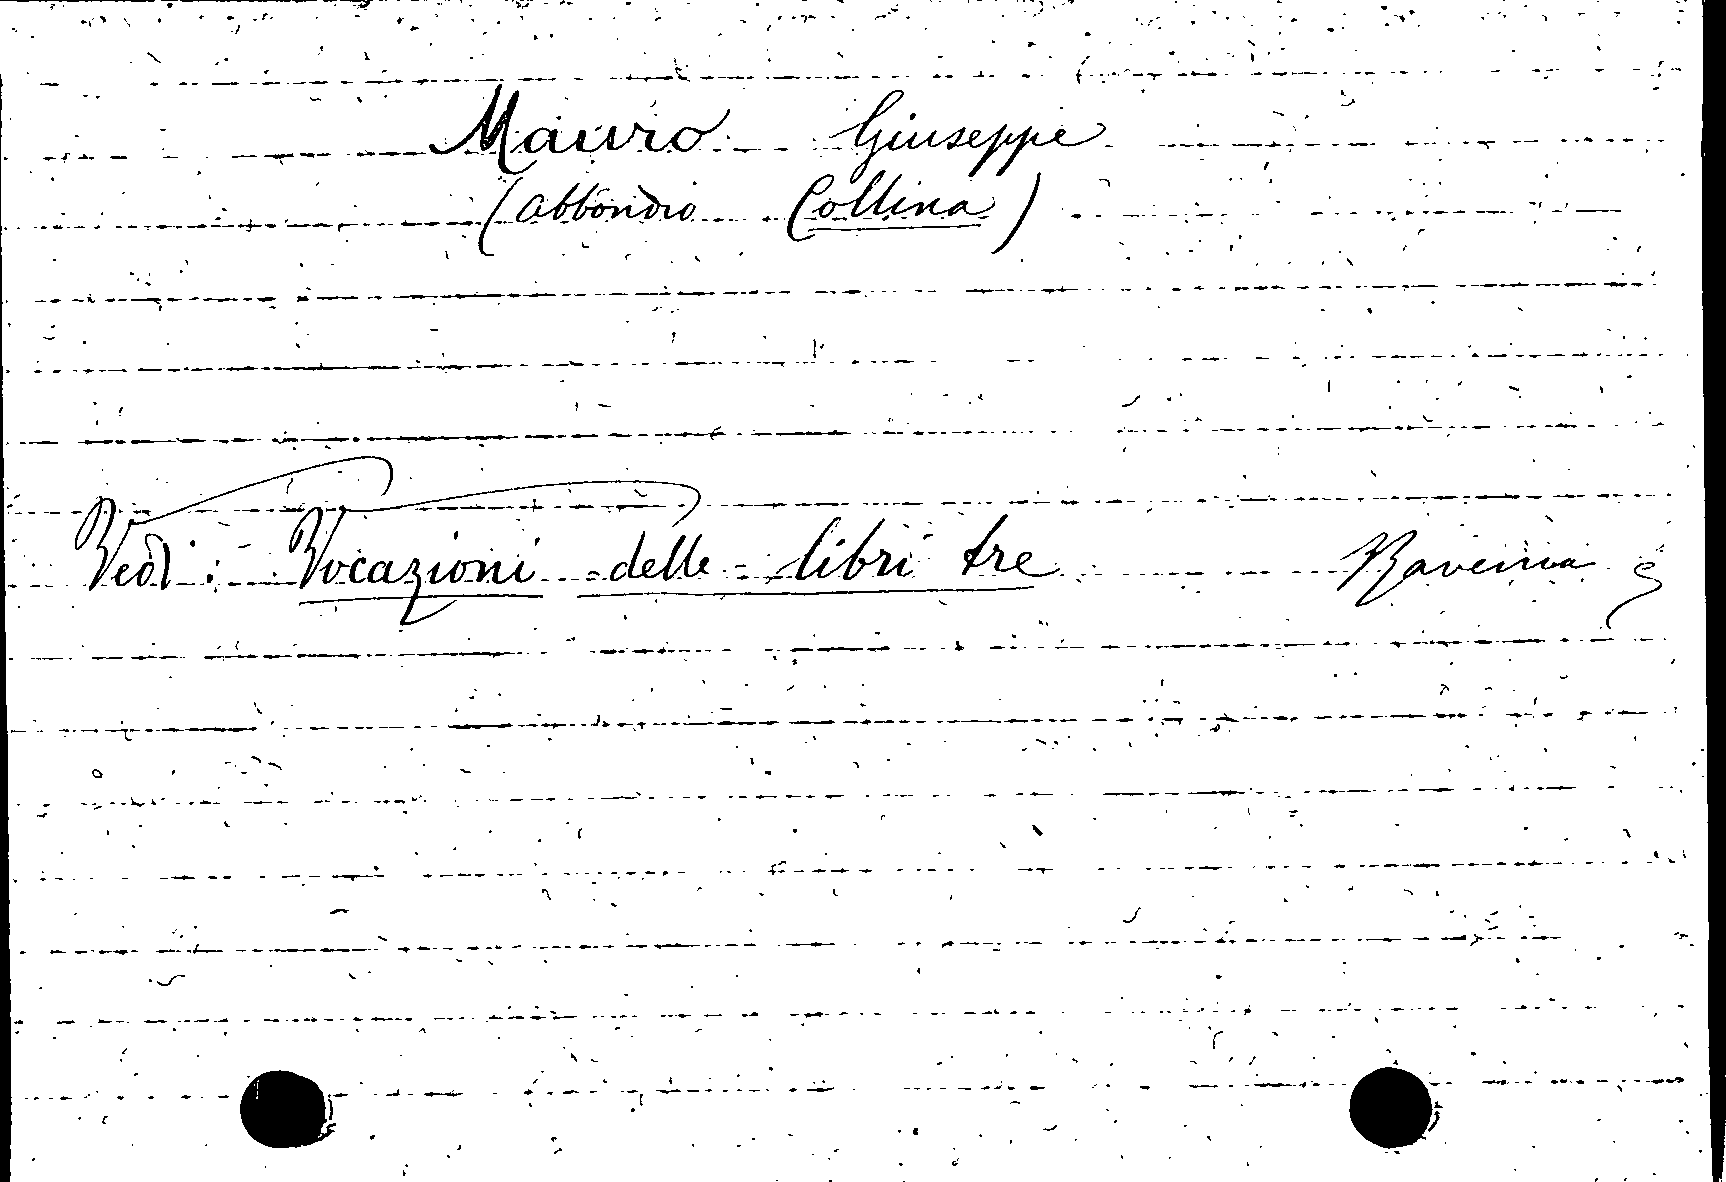 Mauro Giuseppe
(Abbondio Collina)
Vedi: Vocazioni delle libri tre Ravenna